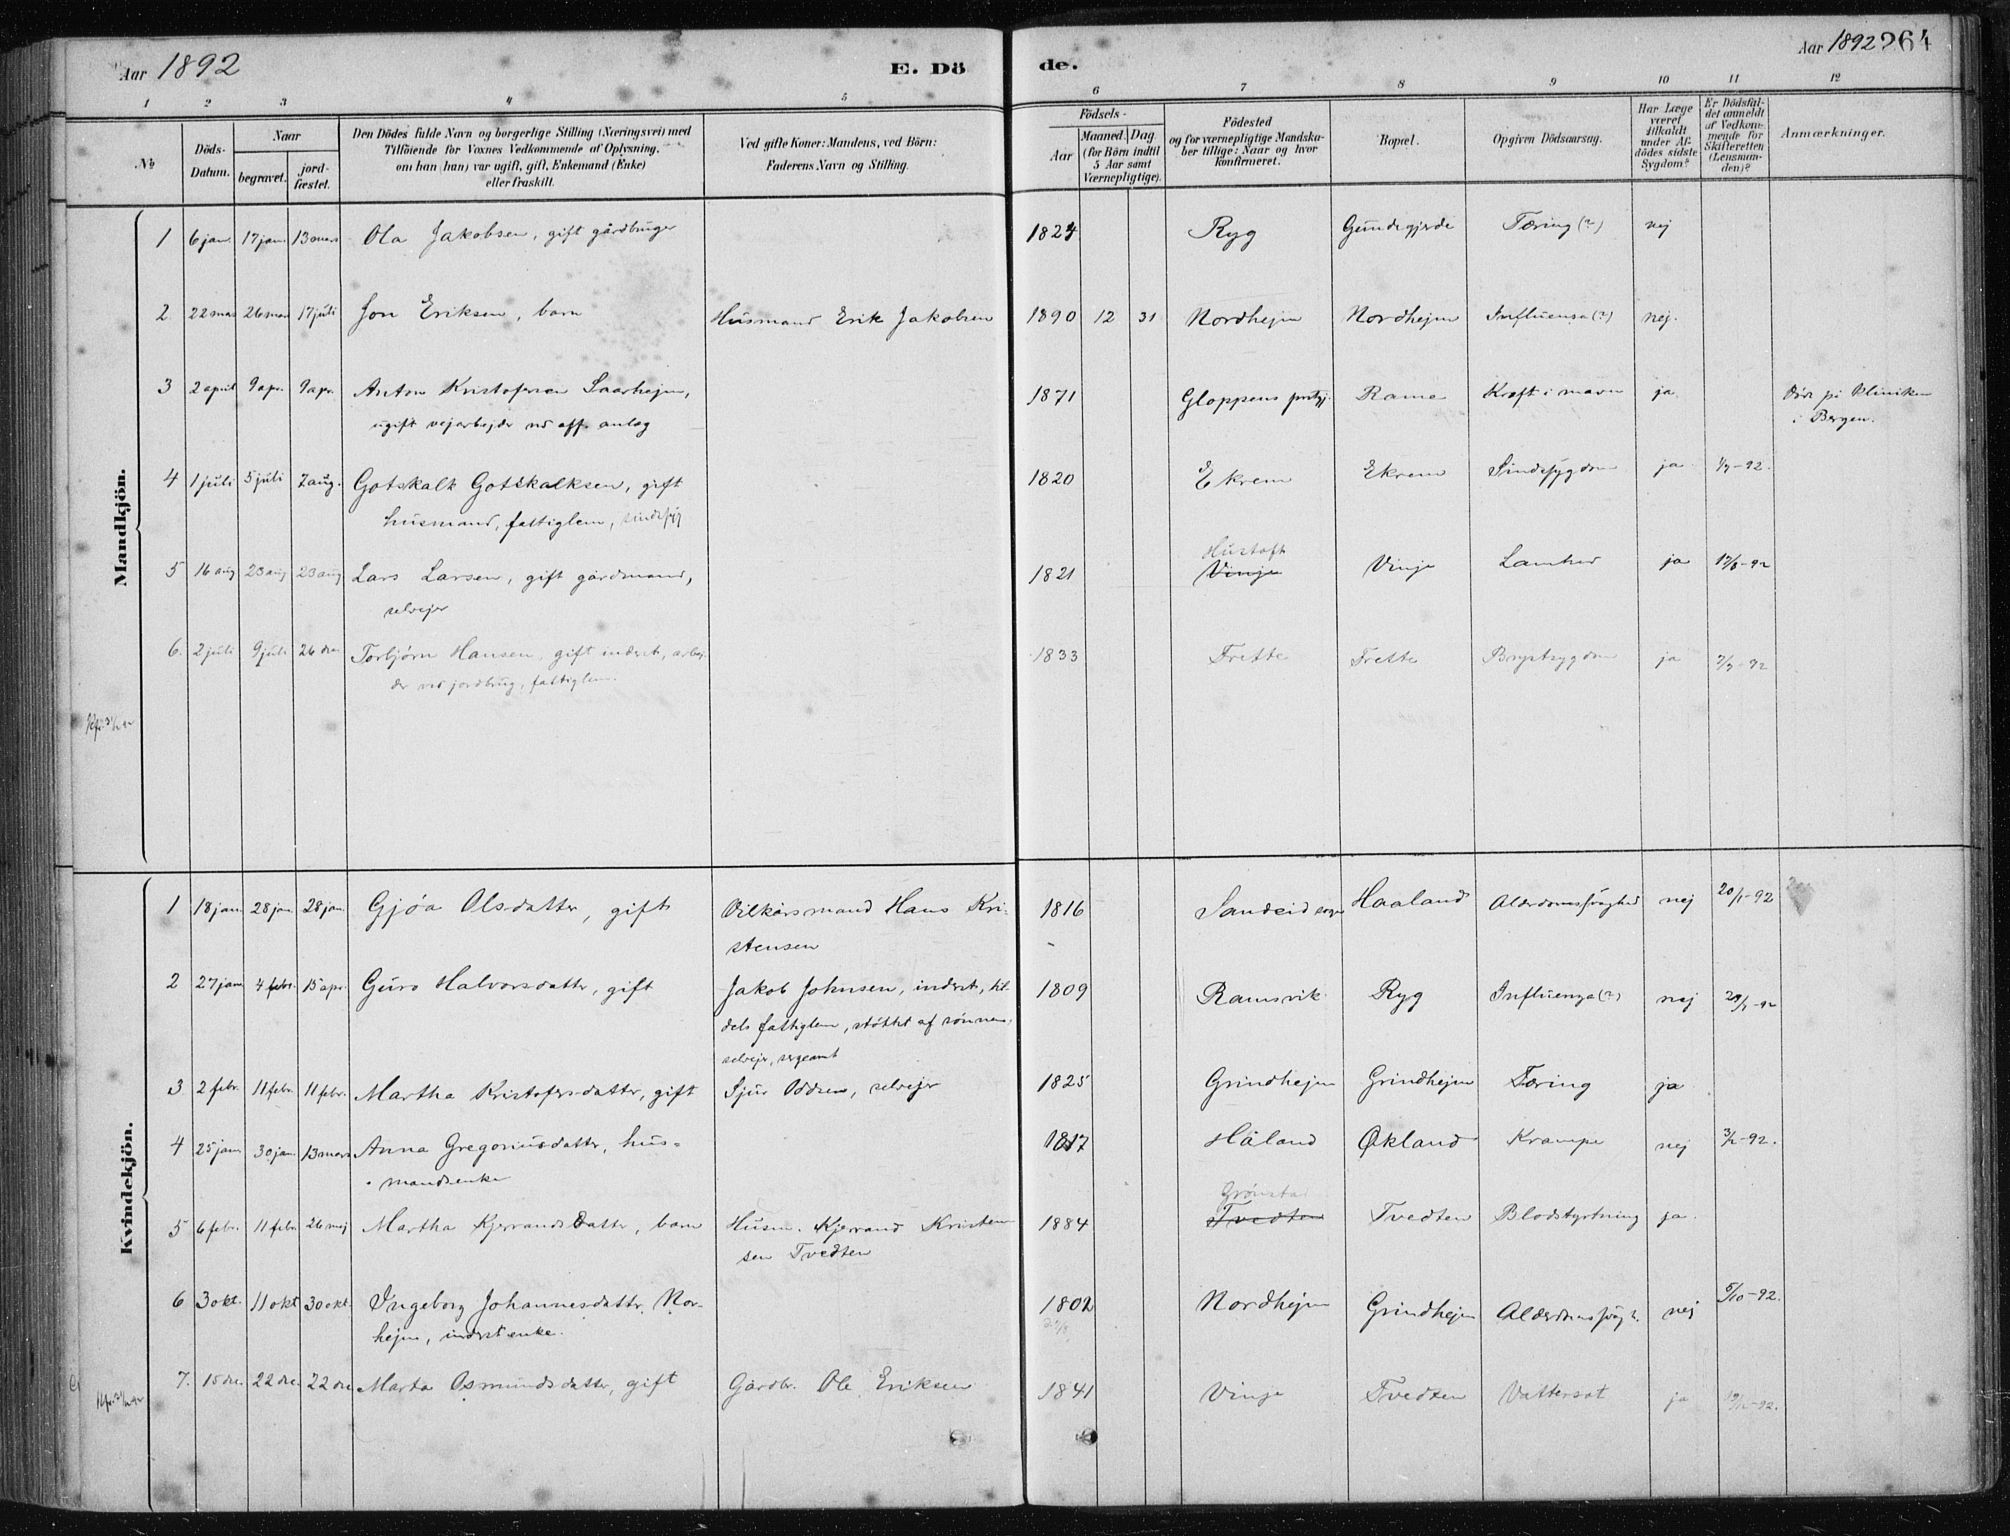 Aar 1892
E. Dö
de.
Aar 1892 264
1 2 3 4 5 6 7 8 9 10 11 12
№
Döds-Datum.
Naar
begravet.
jord-fæstet.
Den Dödes fulde Navn og borgerlige Stilling (Næringsvei) med
Tilföiende for Voxnes Vedkommende af Oplysning,
om han (hun) var ugift, gift, Enkemand (Enke)
eller fraskilt.
Ved gifte Koner: Mandens, ved Börn:
Faderens Navn og Stilling.
Födsels-
Aar
Maaned. Dag.
(for Börn indtil
5 Aar samt
Værnepligtige).
Födested
og for værnepligtige Mandska-
ber tillige: Naar og hvor
konfirmeret.
Bopæl.
Opgiven Dödsaarsag.
Har Læge
været
tilkaldt
under Af-
dödes sidste
Sygdom?
Er Dödsfal-
det anmeldt
af Vedkom-
mende for
Skifteretten
(Lensman-
den)?
Anmærkninger.
Mandkjön.
1 6 jan. 17 jan. 13 mars Ola Jakobsen, gift gårdbruger 1824 Ryg Gundegjerde Tæring (?) nej
2 22 mars 26 mars 17 juli Jon Eriksen, barn Husmand Erik Jakobsen 1890 12 31 Nordhejm Nordhejm Influensa (?) nej.
3 2 april 9 apr. 9 apr. Anton Kristofersen Saarhejm, 1871 Gloppens prstgj. Rame Kræft i maven ja Død på kliniken
ugift vejarbejder ved off. anlæg i Bergen.
4 1 juli 5 juli 7 aug. Gotskalk Gotskalksen, gift 1820 Ekrem Ekrem Sindssygdom ja 1/7-92.
husmand, fattiglem, sindssyg
5 16 aug 23 aug 23 aug Lars Larsen, gift gårdmand, 1821 Hustoft Vinje Vinje Lamhed ja 17/8-92
selvejer
6. 2 juli 9 juli 26 dec. Torbjørn Hansen, gift inderst, arbej-
der ved jordbrug, fattiglem. 1833 Frette Frette Brystsygdom ja 2/7-92
Kvindekjön.
1 18 jan. 28 jan. 28 jan. Gjøa Olsdatter, gift Vilkårsmand Hans Kri- 1816 Sandeid sogn Haaland Alderdomssvaghed nej 20/1-92
stensen
2 27 jan. 4 febr. 15 apr. Guro Halvorsdatter, gift Jakob Johnsen, inderst, til 1809 Ramsvik Ryg Influenza (?) nej 29/1-92
dels fattiglem, støttet af sønnen,
selvejer, sergeant
3 2 febr. 11 febr. 11 febr. Martha Kristofersdatter, gift Sjur Oddsen, selvejer 1825 Grindhejm Grindhejm Tæring ja
4 25 jan. 30 jan. 13 mars Anna Gregoriusdatter, hus- 1817 Håland Økland Krampe nej 3/2-92.
mandsenke
5 6 febr. 11 febr. 26 maj Martha Kjerrandsdatter, barn Husm. Kjerrand Kristen- 1884 Grønstad Tvedten Tvedten Blodstyrtning ja.
sen Tvedten
6 3 okt. 11 okt 30 okt. Ingeborg Johannesdatter Nor- 1802 Nordhejm Grindhejm Alderdomssvagh. nej 5/10-92.
hejm, inderstenke.
7. 15 dec. 22 dec. 22 dec Marta Osmundsdatter, gift Gårdbr. Ole Eriksen 1841 Vinje Tvedten Vattersot ja 19/12-92.